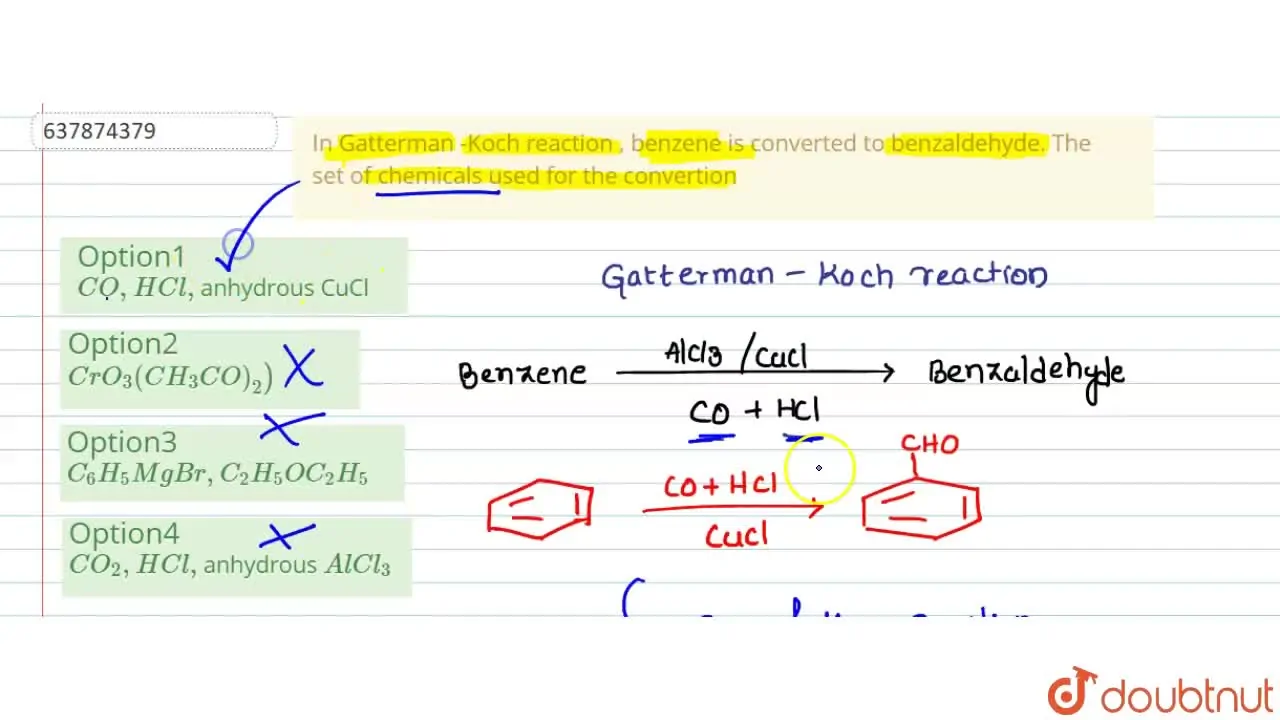 637874379
In Gatterman -Koch reaction , benzene is converted to benzaldehyde. The
set of chemicals used for the convertion
Option1
CO, HCl, anhydrous CuCl
Option2
CrO₃(CH₃CO)₂)
Option3
C₆H₅MgBr, C₂H₅OC₂H₅
Option4
CO₂, HCl, anhydrous AlCl₃
Gatterman - Koch reaction
AlCl3 /CuCl
Benzene
Benzaldehyde
CO + HCl
CHO
CO + HCl
CuCl
doubtnut